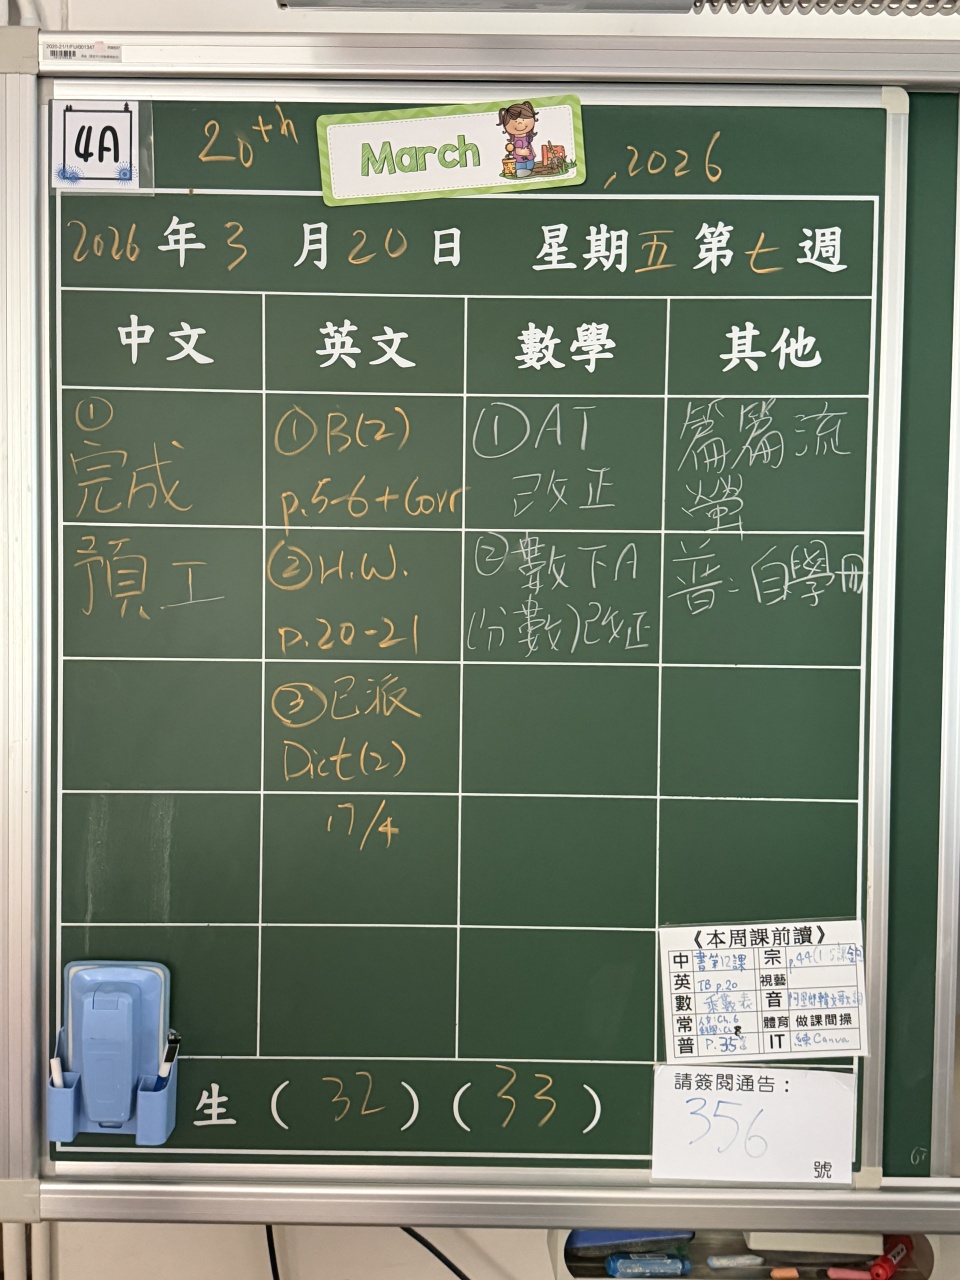 4A
20th March ,2026
2026年3月20日 星期五第七週
中文 英文 數學 其他
①
完成
預工
①B(2)
p.5-6+Corr
②H.W.
p.20-21
③已派
Dict(2)
17/4
①AT
改正
②數下A
(分數)改正
篇篇流
螢
普:自學冊
《本周課前讀》
中 書第12課 宗 p.44(1
英 TB p.20 視藝
數 乘數表 音
常 Ch.6 體育 做課間操
普 P.35 IT 練Canva
生(32)(33)
請簽閱通告:
356
號